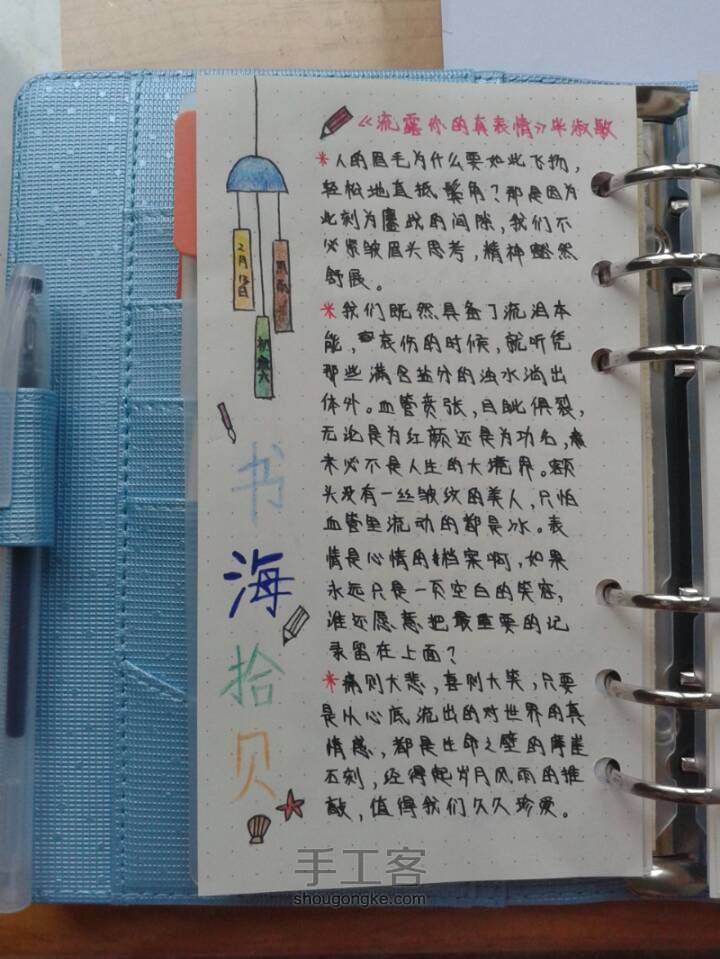 《流露你的真表情》毕淑敏
*人的眉毛为什么要如此飞扬，
轻松地直抵鬓角？那是因为
此刻为鏖战的间隙，我们不
必紧皱眉头思考，精神豁然
舒展。
*我们既然具备了流泪本
能，哀伤的时候，就听凭
那些满含盐分的浊水淌出
体外。血管贲张，目眦俱裂，
无论是为红颜还是为功名，
未必不是人生的大境界。额
头没有一丝皱纹的美人，只怕
血管里流动的都是冰。表
情是心情的档案啊，如果
永远只是一页空白的笑容，
谁还愿意把最重要的记
录留在上面？
*痛则大悲，喜则大笑，只要
是从心底流出的对世界的真
情感，都是生命之壁的摩崖
石刻，经得起岁月风雨的推
敲，值得我们久久珍爱。
2月13日
星期六
书
海
拾
贝
手工客
shougongke.com